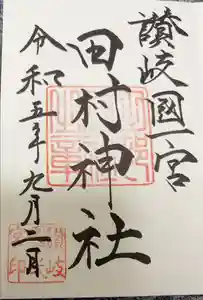 讃岐國一宮
田村神社
令和五年九月二日